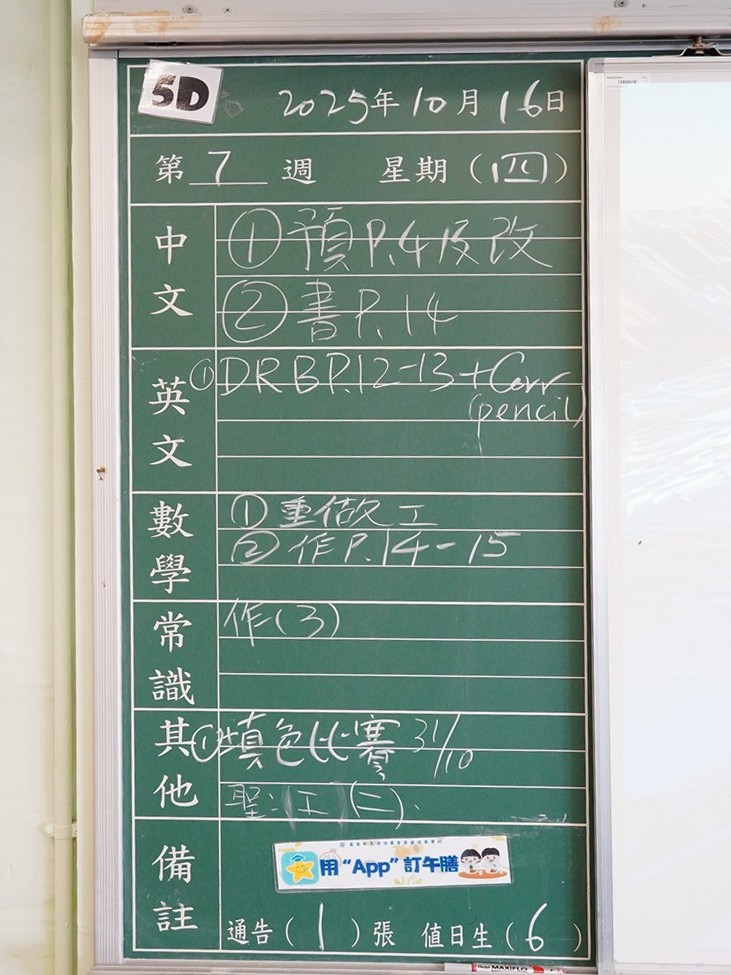 5D
2025年10月16日
第7週 星期（四）
中文
①預P.4及改
②書P.14
英文
①DRBP.12-13+Corr
(pencil)
數學
①重做工
②作P.14-15
常識
作(3)
其他
①填色比賽31/10
聖:工(二).
備註
用“App”訂午膳
通告（1）張 值日生（6）